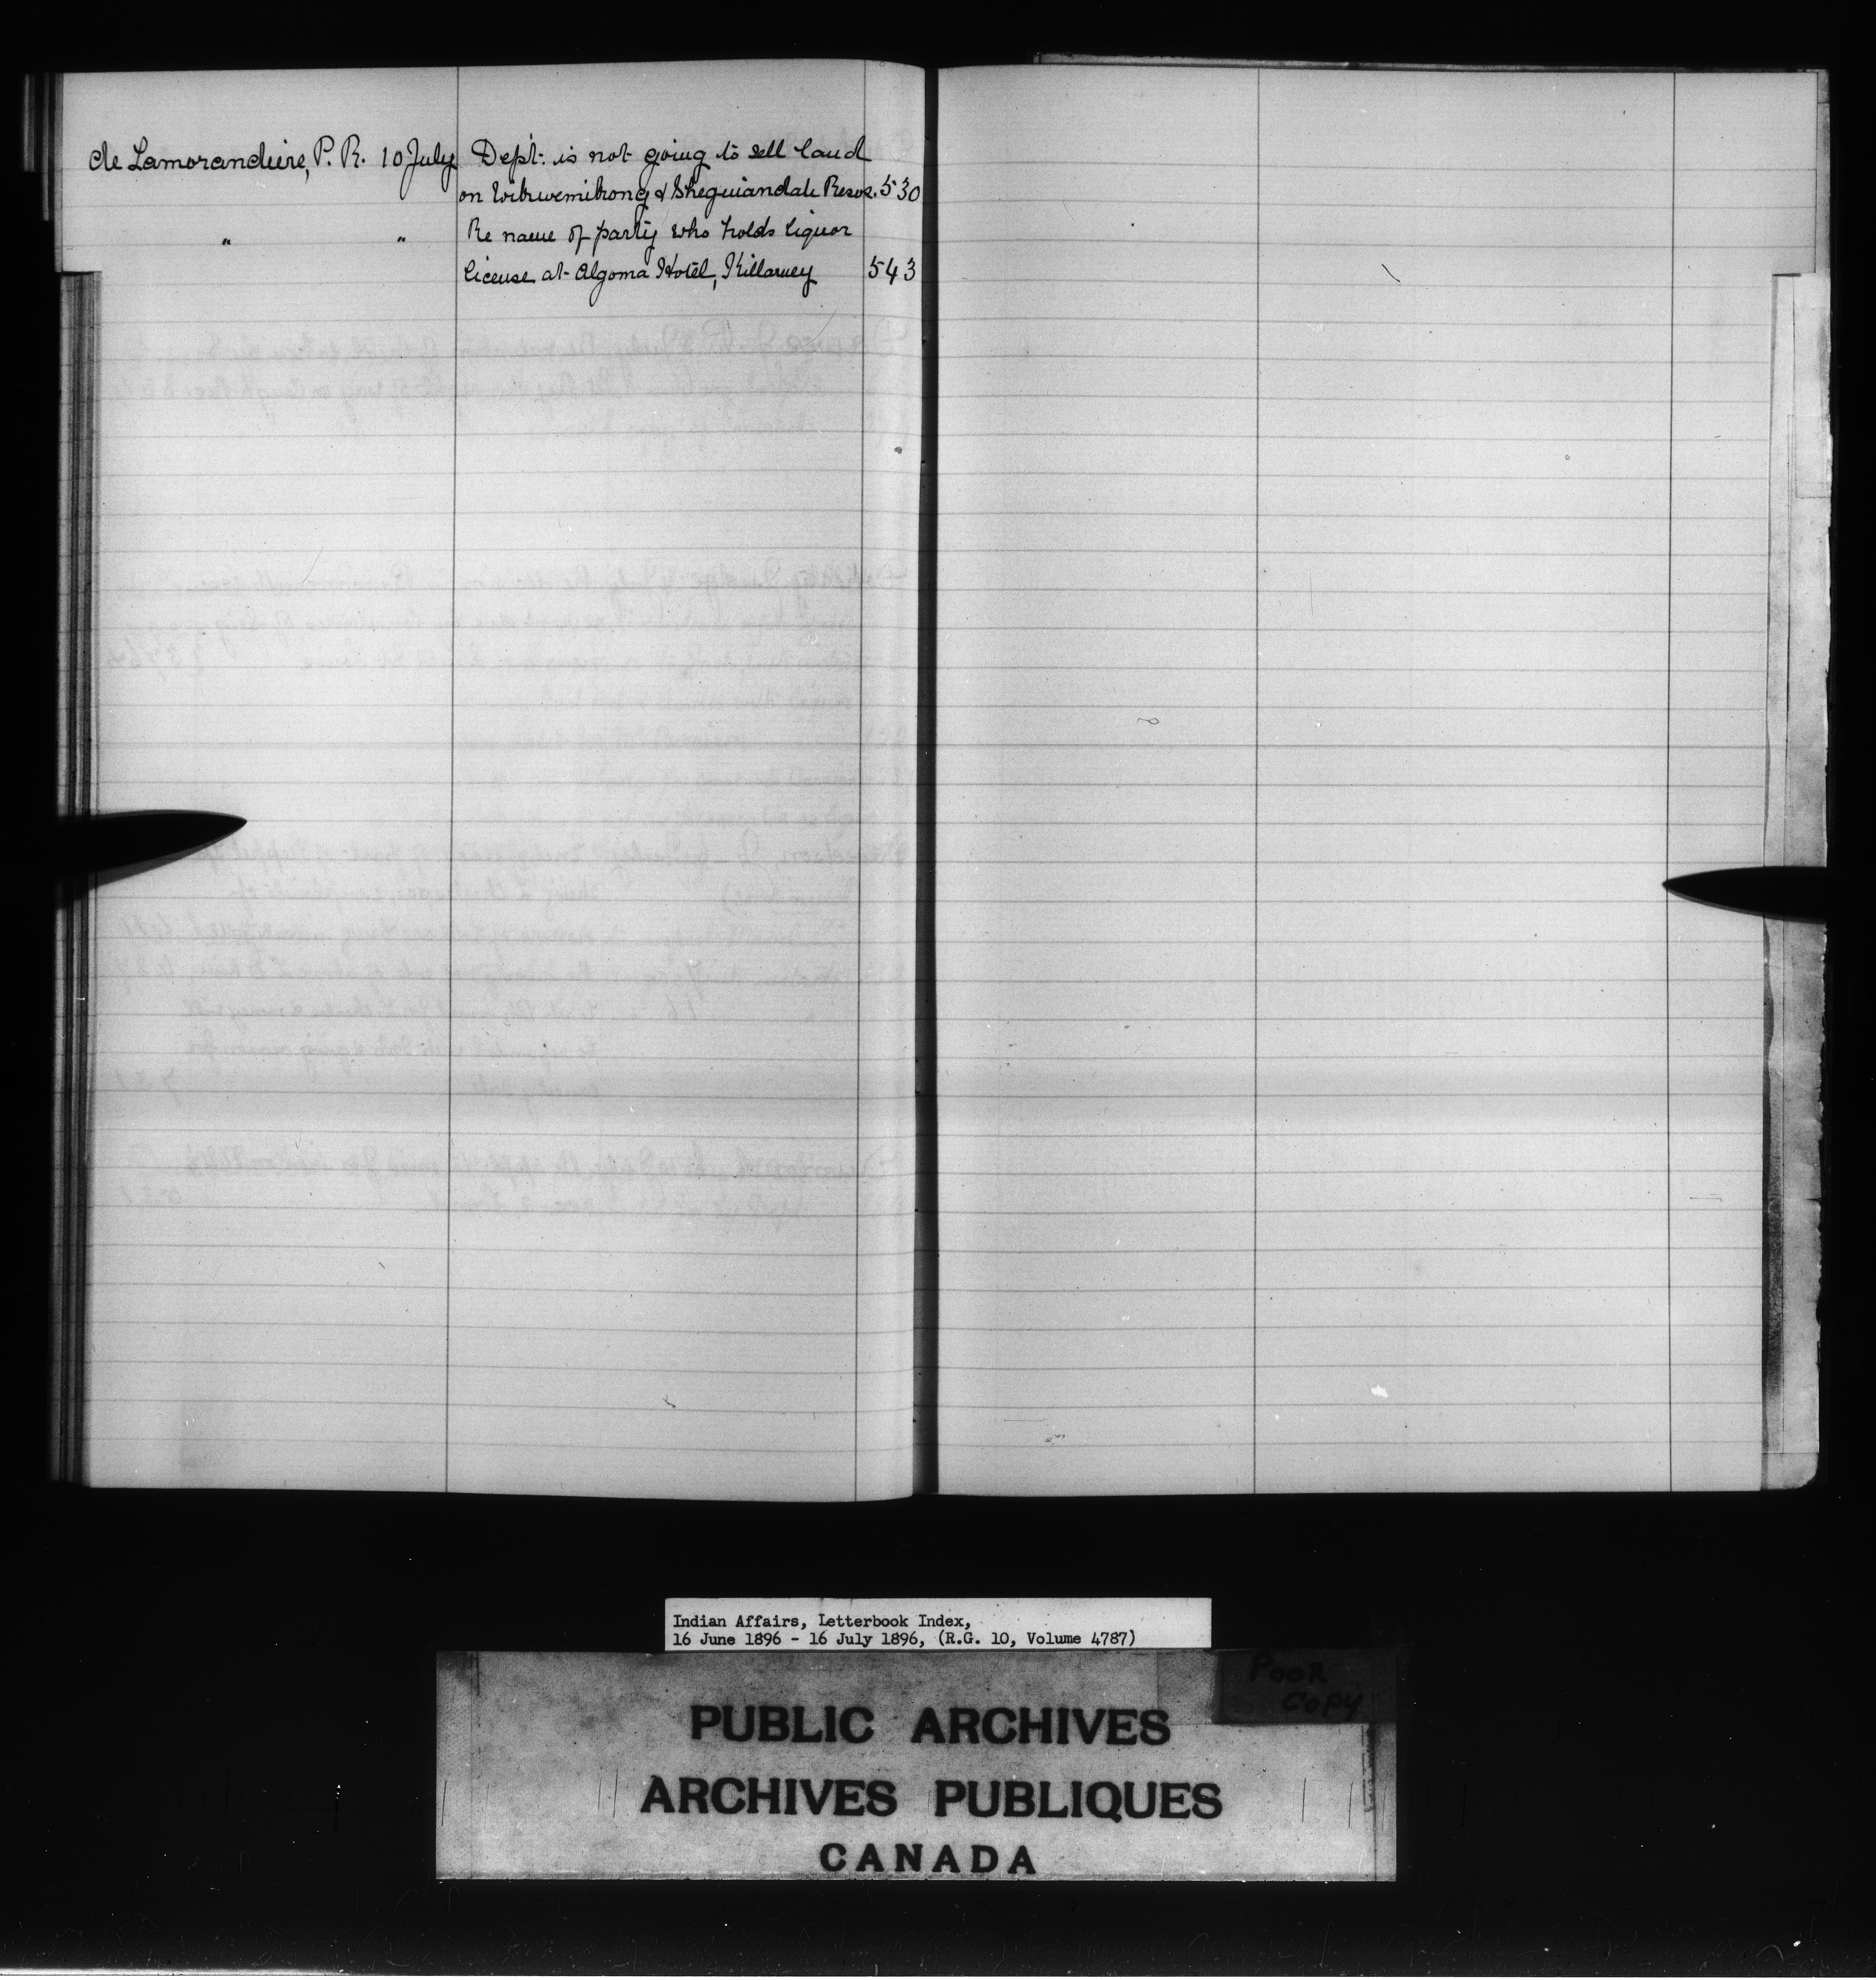 de Lamorandiere, P. R. 10 July Dept. is not going to sell land
on Wikwemikong & Sheguiandah Resve. 530
" " Re name of party who holds liquor
license at Algoma Hotel, Killarney 543
Indian Affairs, Letterbook Index,
16 June 1896 - 16 July 1896, (R.G. 10, Volume 4787)
POOR
COPY
PUBLIC ARCHIVES
ARCHIVES PUBLIQUES
CANADA